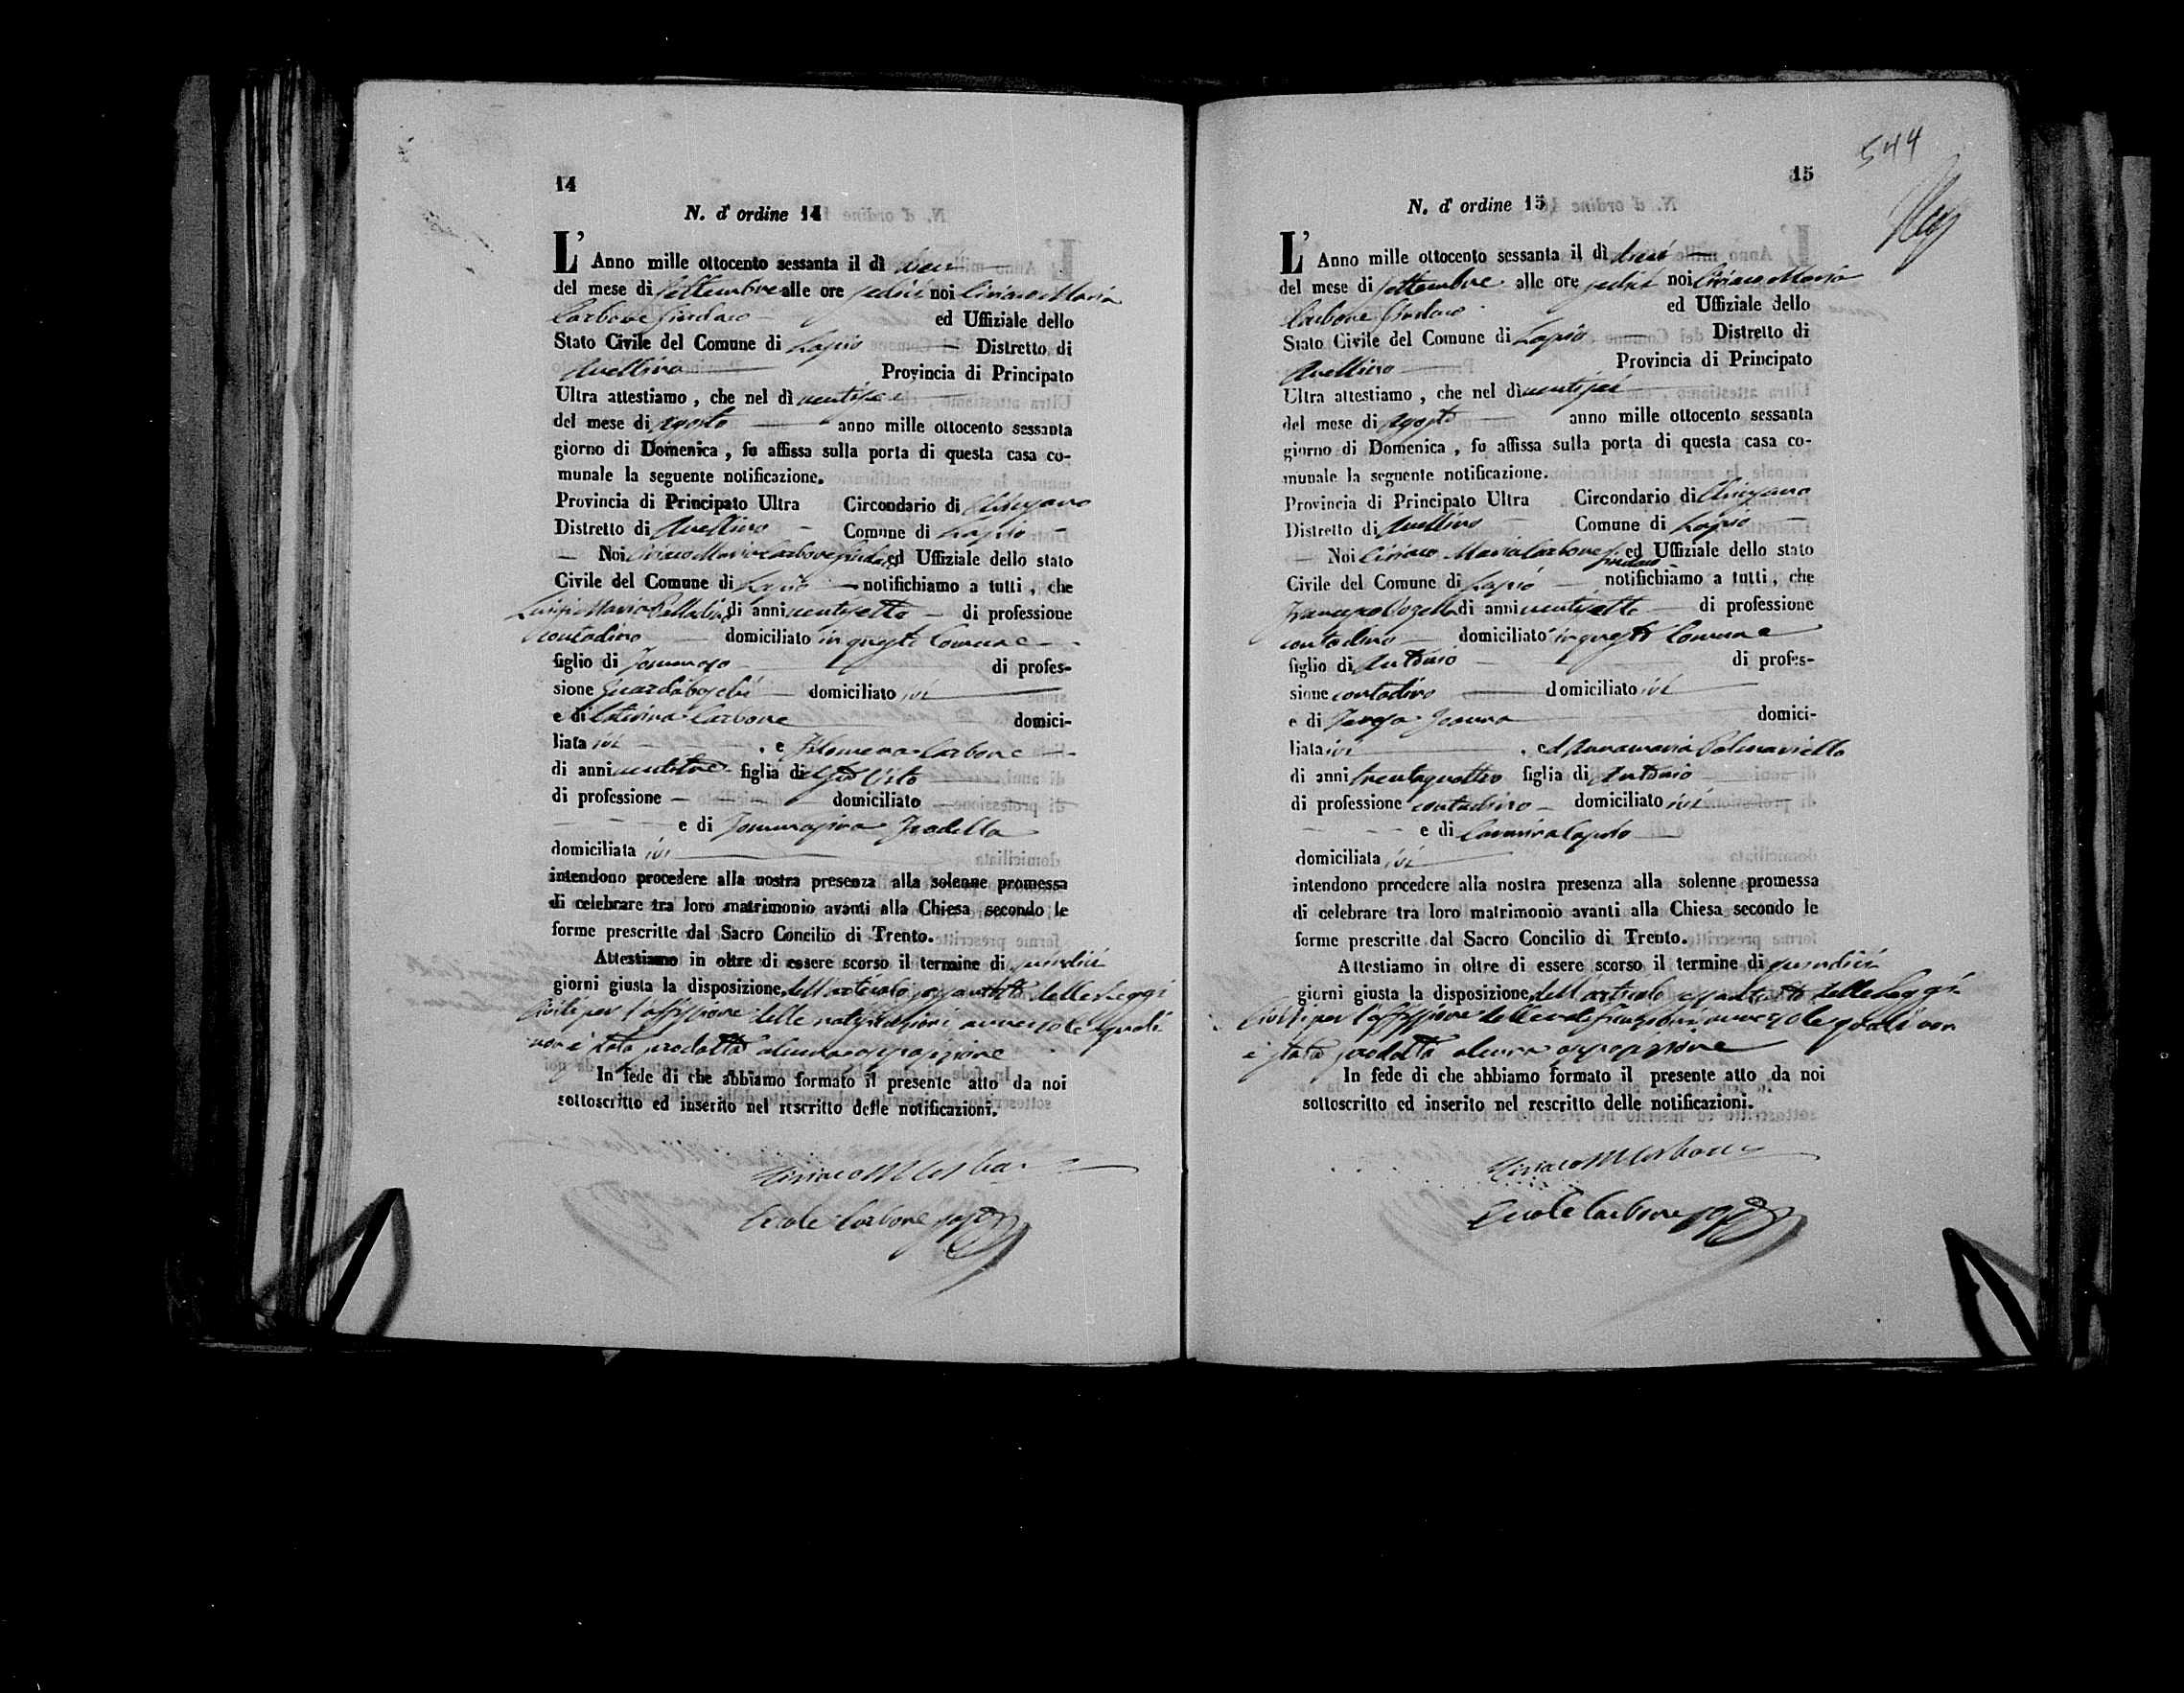 14
N. d' ordine 14
L' Anno mille ottocento sessanta il dì
del mese di Settembre alle ore sedici noi Ciriaco Maria
Carbone Sindaco ed Uffiziale dello
Stato Civile del Comune di Lapio — Distretto di
Avellino Provincia di Principato
Ultra attestiamo , che nel dì ventisei
del mese di Agosto anno mille ottocento sessanta
giorno di Domenica , fu affissa sulla porta di questa casa co-
munale la seguente notificazione.
Provincia di Principato Ultra Circondario di Chiusano
Distretto di Avellino Comune di Lapio
— Noi Ciriaco Maria Carbone Sindaco ed Uffiziale dello stato
Civile del Comune di Lapio — notifichiamo a tutti , che
Luigi Maria di anni ventisette di professione
contadino domiciliato in questo Comune
figlio di Tommaso di profes-
sione Guardaboschi domiciliato ivi
e di Caterina Carbone domici-
liata ivi . e Filomena Carbone
di anni ventitre figlia di Vito
di professione — domiciliato —
e di Tommasina
domiciliata ivi
intendono procedere alla nostra presenza alla solenne promessa
di celebrare tra loro matrimonio avanti alla Chiesa secondo le
forme prescritte dal Sacro Concilio di Trento.
Attestiamo in oltre di essere scorso il termine di quindici
giorni giusta la disposizione dell'articolo sessantotto delle Leggi
Civili per l'affissione delle notificazioni avverso le quali
non è stata prodotta alcuna opposizione
In fede di che abbiamo formato il presente atto da noi
sottoscritto ed inserito nel rescritto delle notificazioni.
Ciriaco M Carbone
Ercole Carbone
544
15
N. d' ordine 15
L' Anno mille ottocento sessanta il dì
del mese di Settembre alle ore sedici noi Ciriaco Maria
Carbone Sindaco ed Uffiziale dello
Stato Civile del Comune di Lapio — Distretto di
Avellino Provincia di Principato
Ultra attestiamo , che nel dì ventisei
del mese di Agosto anno mille ottocento sessanta
giorno di Domenica , fu affissa sulla porta di questa casa co-
munale la seguente notificazione.
Provincia di Principato Ultra Circondario di Chiusano
Distretto di Avellino Comune di Lapio
— Noi Ciriaco Maria Carbone Sindaco ed Uffiziale dello stato
Civile del Comune di Lapio — notifichiamo a tutti , che
Francesco di anni ventisette di professione
contadino domiciliato in questo Comune
figlio di Antonio di profes-
sione contadino domiciliato ivi
e di Teresa domici-
liata ivi . ed Annamaria Palmariello
di anni trentaquattro figlia di Antonio
di professione contadino domiciliato ivi
e di Carmina Caputo
domiciliata ivi
intendono procedere alla nostra presenza alla solenne promessa
di celebrare tra loro matrimonio avanti alla Chiesa secondo le
forme prescritte dal Sacro Concilio di Trento.
Attestiamo in oltre di essere scorso il termine di quindici
giorni giusta la disposizione dell'articolo sessantotto delle Leggi
Civili per l'affissione delle notificazioni avverso le quali non
è stata prodotta alcuna opposizione
In fede di che abbiamo formato il presente atto da noi
sottoscritto ed inserito nel rescritto delle notificazioni.
Ciriaco M Carbone
Ercole Carbone